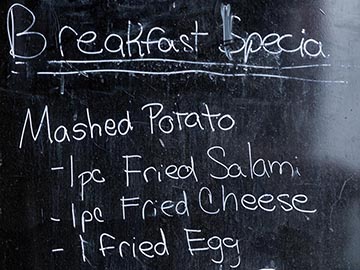 Breakfast Specia
Mashed Potato
-1pc Fried Salami
-1pc Fried Cheese
-1 Fried Egg